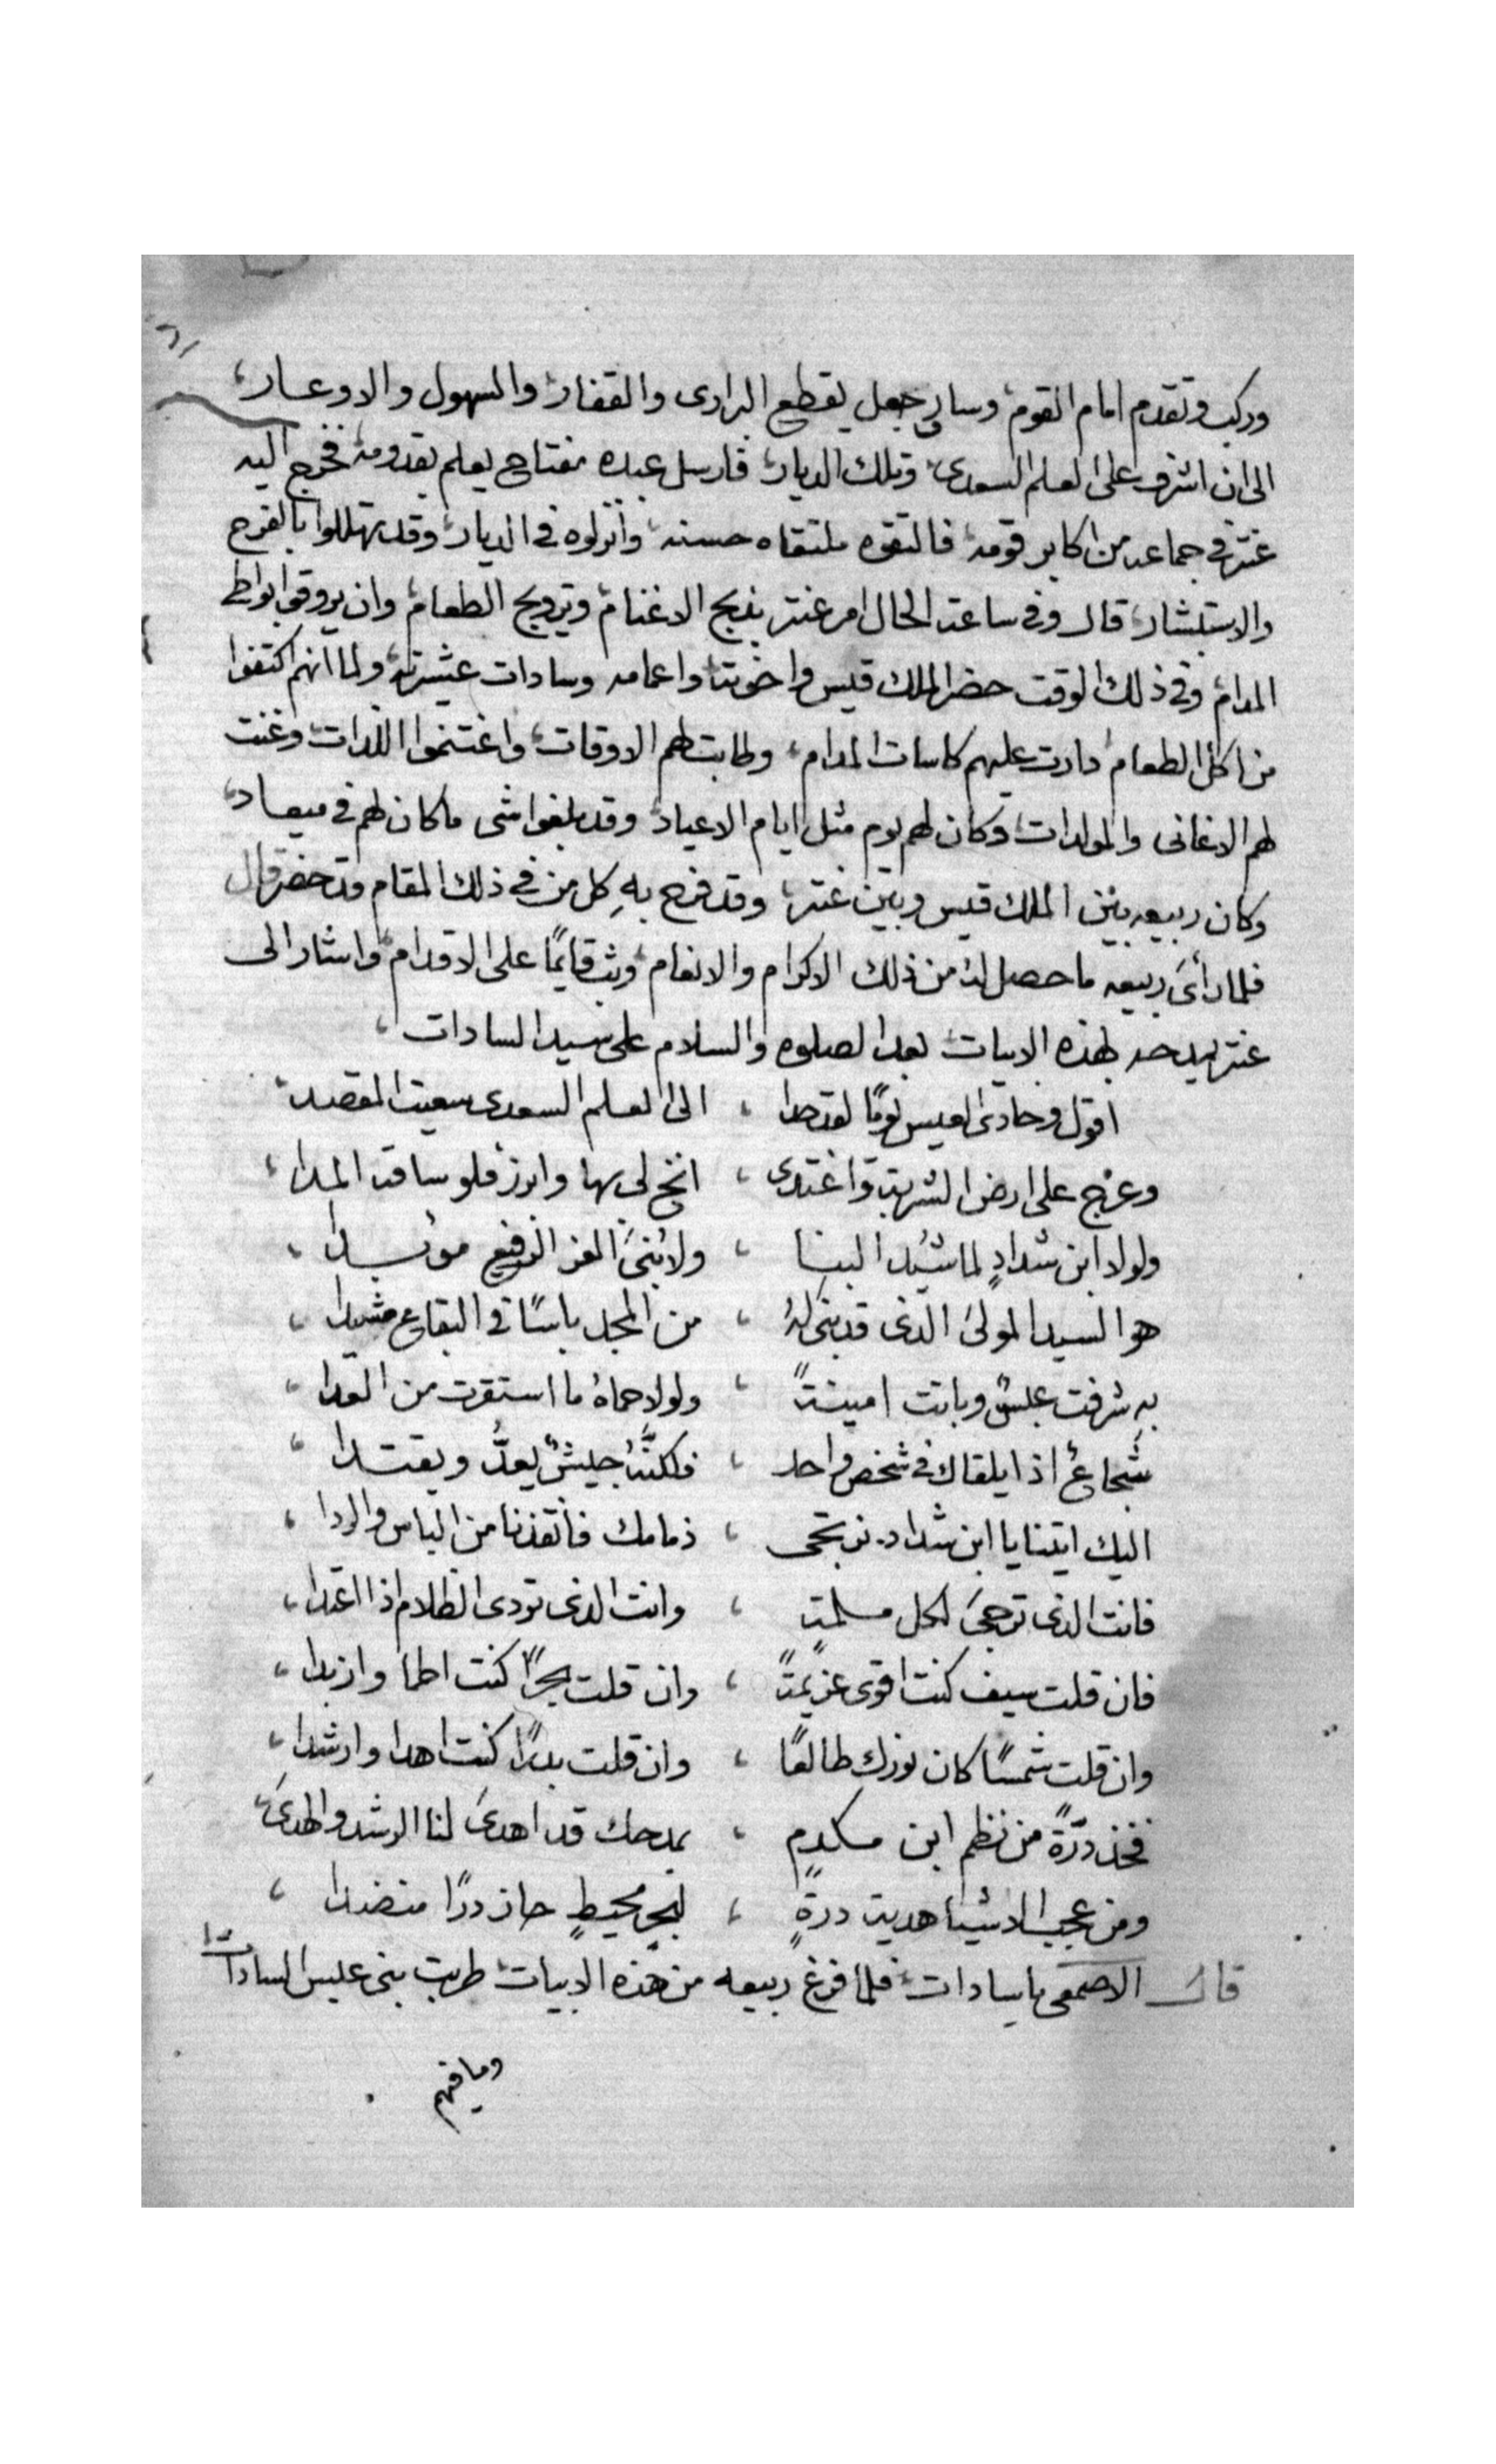 وركب وتقدم امام القوم وسار وجعل يقطع البرارى والقفار والسهول والاوعار
الى ان اشرف على العلم السعدى وتلك الديار فارسل عبده مفتاح يعلم بقدومه فخرج اليه
عنتر فى جماعه من اكابر قومه فالتقوه ملتقاه حسنه وانزلوه فى الديار وقد تهللوا بالفرح
والاستبشار قال وفى ساعة الحال امر عنتر بذبح الاغنام وترويج الطعام وان يروقوا بواطى
المدام وفى ذلك الوقت حضر الملك قيس واخوته واعمامه وسادات عشيرته ولما انهم اكتفوا
من اكل الطعام دارت عليهم كاسات المدام وطابت لهم الاوقات واغتنموا اللذات وغنت
لهم الاغانى والمولدات وكان لهم يوم مثل ايام الاعياد وقد بلغوا شى ما كان لهم فى ميعاد
وكان ربيعه بين الملك قيس وبين عنتر وقد فرح بهِ كل من فى ذلك المقام قد حضر قال
فلما رأىَ ربيعه ما حصل لهُ من ذلك الاكرام والانعام وثب قايمًا على الاقدام واشار الى
عنتر يمدحه بهذه الابيات بعد الصلوه والسلام على سيد السادات
اقول وحادى العيس يومًا لقد حدا ، الى العلم السعدى سعيت المقصد
وعرّج على ارض الشربة واغتدى ، انخ لى بها وابرز فلو ساقه المدا
ولولا ابن شدادٍ لما شُيّد البنا ، ولا بُنىَ العز الرفيع موسدا
هو السيد المولىَ الذى قد بنى لهُ ، من المجد باسًا فى البقاع مشيدا
به شرفت عبسٌ وباتت امينةً ، ولولا حماهُ ما استقرت من العدا
شُجاعٌ اذا يلقاك فى شخص واحد ، فلكنَّهُ جيشٌ يعدُّ ويقتدا
اليك اتينا يا ابن شداد نرتجى ، ذمامك فانقذنا من الباس والردا
فانت الذى ترجىَ لكل مسلمةٍ ، وانت الذى تودى الظلام اذا اعتدا
فان قلت سيف كنت اقوى عزيمةً ، وان قلت بحرًا كنت اطما وازبدا
وان قلت شمسًا كان نورك طالعًا ، وان قلت بدرًا كنت اهدا وارشدا
فخذ درّةً من نظم ابن مكدمٍ ، بمدحك قد اهدىَ لنا الرشد والهدىَ
ومن عجب الاشيا هدية درةٍ ، لبحرٍ محيطٍ حاز درًا منضدا
قال الاصمعى ياسادات فلما فرغ ربيعه من هذه الابيات طربت بنى عبس السادات
وما فيهم